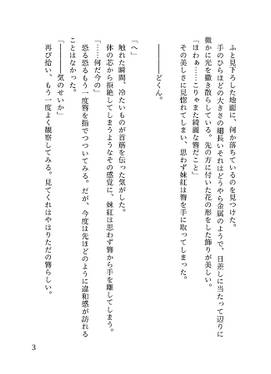 ふと見下ろした地面に、何か落ちているのを見つけた。
手のひらほどの大きさの細長いそれはどうやら金属のようで、日差しに当たって辺りに
微かに光を撒き散らしている。先の方に付いた花の形をした飾りが美しい。
『ほわぁ……こりゃまた綺麗な簪だこと』
その美しさに見惚れてしまい、思わず妹紅は簪を手に取ってしまった。
――――どくん。
『へ』
触れた瞬間、冷たいものが首筋を伝った気がした。
体の芯から拒絶してしまうようなその感覚に、妹紅は思わず簪から手を離してしまう。
『……何だ今の』
恐る恐るもう一度簪を指でつついてみる。だが、今度は先ほどのように違和感が訪れる
ことはなかった。
『――――気のせいか』
再び拾い、もう一度よく観察してみる。見てくれはやはりただの簪らしい。
3